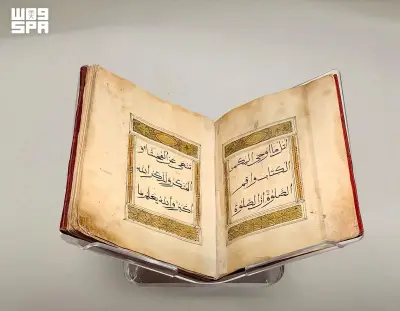 واس
SPA
اتل ما اوحى اليك من
الكتاب واقم
الصلوة ان الصلوة
تنهى عن الفحشاء و
المنكر ولذكر الله
اكبر والله يعلم ما